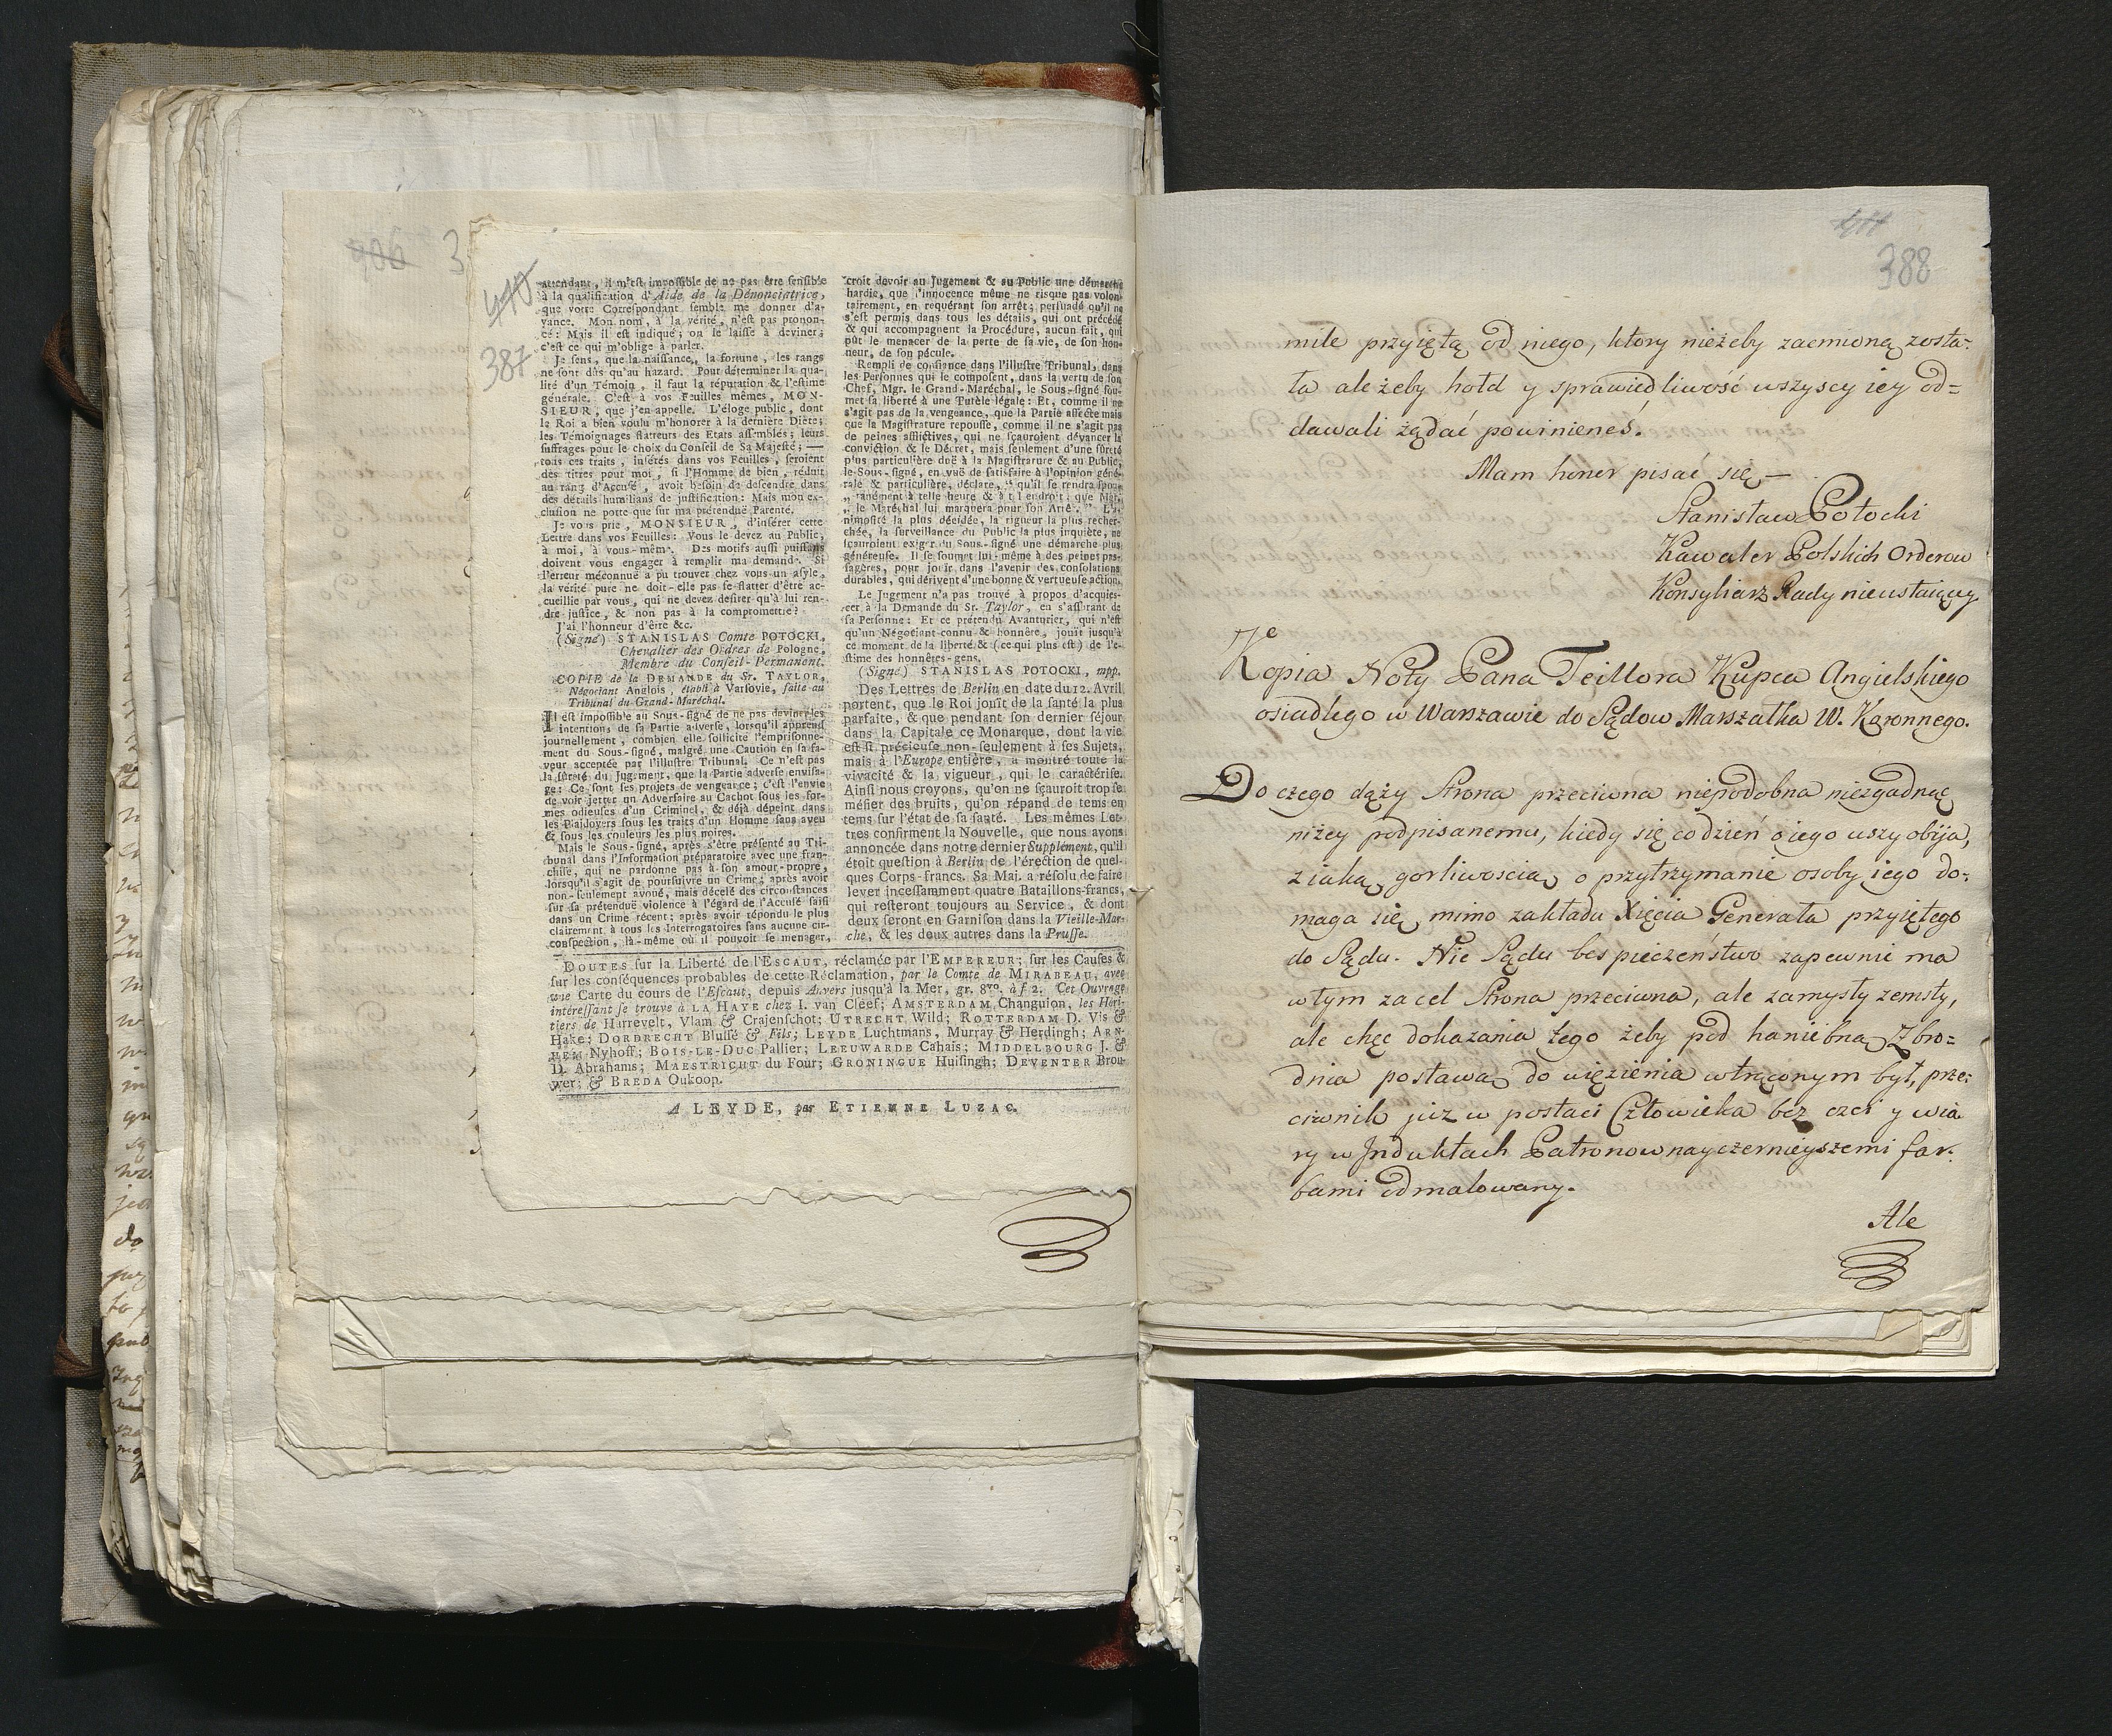 406 3
410
387
attendant, il m'est impossible de ne pas être sensible
à la qualification d'Aide de la Dénonciatrice,
que votre Correspondant semble me donner d'a-
vance. Mon nom, à la vérité, n'est pas pronon-
cé: Mais il est indiqué; on le laisse à deviner;
c'est ce qui m'oblige à parler.
Je sens, que la naissance, la fortune, les rangs
ne sont dûs qu'au hazard. Pour déterminer la qua-
lité d'un Témoin, il faut la réputation & l'estime
générale. C'est à vos Feuilles mêmes, MON-
SIEUR, que j'en appelle. L'éloge public, dont
le Roi a bien voulu m'honorer à la dernière Diète;
les Témoignages flatteurs des Etats assemblés; leurs
suffrages pour le choix du Conseil de Sa Majesté; —
tous ces traits, insérés dans vos Feuilles, seroient
des titres pour moi, si l'Homme de bien, réduit
au rang d'Accusé, avoit besoin de descendre dans
des détails humilians de justification: Mais mon ex-
clusion ne porte que sur ma prétenduë Parenté.
Je vous prie, MONSIEUR, d'insérer cette
Lettre dans vos Feuilles: Vous le devez au Public,
à moi, à vous-même. Des motifs aussi puissans
doivent vous engager à remplir ma demande. Si
l'erreur méconnuë a pu trouver chez vous un asyle,
la vérité pure ne doit-elle pas se flatter d'être ac-
cueillie par vous, qui ne devez desirer qu'à lui ren-
dre justice, & non pas à la compromettre?
J'ai l'honneur d'être &c.
(Signé) STANISLAS Comte POTOCKI,
Chevalier des Ordres de Pologne,
Membre du Conseil-Permanent.
COPIE de la DEMANDE du Sr. TAYLOR,
Négociant Anglois, établi à Varsovie, faite au
Tribunal du Grand-Maréchal.
Il est impossible au Sous-signé de ne pas deviner les
intentions de sa Partie adverse, lorsqu'il apprend
journellement, combien elle sollicite l'emprisonne-
ment du Sous-signé, malgré une Caution en sa fa-
veur acceptée par l'illustre Tribunal. Ce n'est pas
la sûreté du Jugement, que la Partie adverse envisa-
ge: Ce sont ses projets de vengeance; c'est l'envie
de voir jetter un Adversaire au Cachot sous les for-
mes odieuses d'un Criminel, & déjà dépeint dans
les Plaidoyers sous les traits d'un Homme sans aveu
& sous les couleurs les plus noires.
Mais le Sous-signé, après s'être présenté au Tri-
bunal dans l'Information préparatoire avec une fran-
chise, qui ne pardonne pas à son amour-propre,
lorsqu'il s'agit de poursuivre un Crime; après avoir
non-seulement avoué, mais décelé des circonstances
sur sa prétenduë violence à l'égard de l'Accusé saisi
dans un Crime récent; après avoir répondu le plus
clairement à tous les Interrogatoires sans aucune cir-
conspection, là-même où il pouvoit se menager,
croit devoir au Jugement & au Public une démarche
hardie, que l'innocence même ne risque pas volon-
tairement, en requérant son arrêt; persuadé qu'il ne
s'est permis dans tous les détails, qui ont précédé
& qui accompagnent la Procédure, aucun fait, qui
pût le menacer de la perte de sa vie, de son hon-
neur, de son pécule.
Rempli de confiance dans l'illustre Tribunal, dans
les Personnes qui le composent, dans la vertu de son
Chef, Mgr. le Grand-Maréchal, le Sous-signé sou-
met sa liberté à une Tutèle légale: Et, comme il ne
s'agit pas de la vengeance, que la Partie affecte mais
que la Magistrature repousse, comme il ne s'agit pas
de peines afflictives, qui ne sçauroient dévancer la
conviction & le Décret, mais seulement d'une sûreté
plus particulière duë à la Magistrature & au Public,
le Sous-signé, en vuë de satisfaire à l'opinion géné-
rale & particulière, déclare, „ qu'il se rendra spon-
„ tanément à telle heure & à tel endroit, que Mgr.
„ le Maréchal lui marquera pour son Arrêt." L'a-
nimosité la plus décidée, la rigueur la plus recher-
chée, la surveillance du Public la plus inquiète, ne
sçauroient exiger du Sous-signé une démarche plus
généreuse. Il se soumet lui-même à des peines pas-
sagères, pour jouir dans l'avenir des consolations
durables, qui dérivent d'une bonne & vertueuse action.
Le Jugement n'a pas trouvé à propos d'acquies-
cer à la Demande du Sr. Taylor, en s'assurant de
sa Personne: Et ce prétendu Avanturier, qui n'est
qu'un Négociant connu & honnête, jouit jusqu'à
ce moment de la liberté & (ce qui plus est) de l'e-
stime des honnêtes-gens.
(Signé) STANISLAS POTOCKI, mpp.
Des Lettres de Berlin en date du 12. Avril
portent, que le Roi jouît de la santé la plus
parfaite, & que pendant son dernier séjour
dans la Capitale ce Monarque, dont la vie
est si précieuse non-seulement à ses Sujets,
mais à l'Europe entière, a montré toute la
vivacité & la vigueur, qui le caractérise.
Ainsi nous croyons, qu'on ne sçauroit trop se
méfier des bruits, qu'on répand de tems en
tems sur l'état de sa santé. Les mêmes Let-
tres confirment la Nouvelle, que nous avons
annoncée dans notre dernier Supplément, qu'il
étoit question à Berlin de l'érection de quel-
ques Corps-francs. Sa Maj. a résolu de faire
lever incessamment quatre Bataillons-francs,
qui resteront toujours au Service, & dont
deux seront en Garnison dans la Vieille-Mar-
che, & les deux autres dans la Prusse.
DOUTES sur la Liberté de l'ESCAUT, réclamée par l'EMPEREUR; sur les Causes &
sur les conséquences probables de cette Réclamation, par le Comte de MIRABEAU, avec
une Carte du cours de l'Escaut, depuis Anvers jusqu'à la Mer, gr. 8vo. à f 2. Cet Ouvrage
intéressant se trouve à LA HAYE chez I. van Cleef; AMSTERDAM Changuion, les Héri-
tiers de Harrevelt, Vlam & Crajenschot; UTRECHT Wild; ROTTERDAM D. Vis &
Hake; DORDRECHT Blussé & Fils; LEYDE Luchtmans, Murray & Herdingh; ARN-
HEM Nyhoff; BOIS-LE-DUC Pallier; LEEUWARDE Cahais; MIDDELBOURG J. &
D. Abrahams; MAESTRICHT du Four; GRONINGUE Huisingh; DEVENTER Brou-
wer; & BREDA Oukoop.
A LEYDE, par ETIENNE LUZAC.
388
mile przyiętą od niego, ktory nieżeby zaemioną zosta-
ła ale żeby hołd y sprawiedliwość wszyscy iey od-
dawali żądać powinieneś.
Mam honor pisać się —
Stanisław Potocki
Kawaler Polskich Orderow
Konsyliarz Rady nieustaiący
Kopia Noty Pana Teillora Kupca Angielskiego
osiadłego w Warszawie do Sądow Marszałka W. Koronnego.
Do czego dąży Strona przeciwna niepodobna niezgadnąć
niżey podpisanemu, kiedy się codzień o iego uszy obija,
z iaką gorliwoscią o przytrzymanie osoby iego do-
maga się, mimo zakładu Xięcia Generała przyiętego
do Sądu. Nie Sądu bespieczeństwo zapewnie ma
w tym za cel Strona przeciwna, ale zamysły zemsty,
ale chęć dokazania tego żeby pod haniebną Zbro-
dnia postawą do więzienia wtrąconym był, prze-
ciwnik już w postaci Człowieka bez czci y wia-
ry w Induktach Patronow nayczernieyszemi far-
bami odmalowany.
Ale